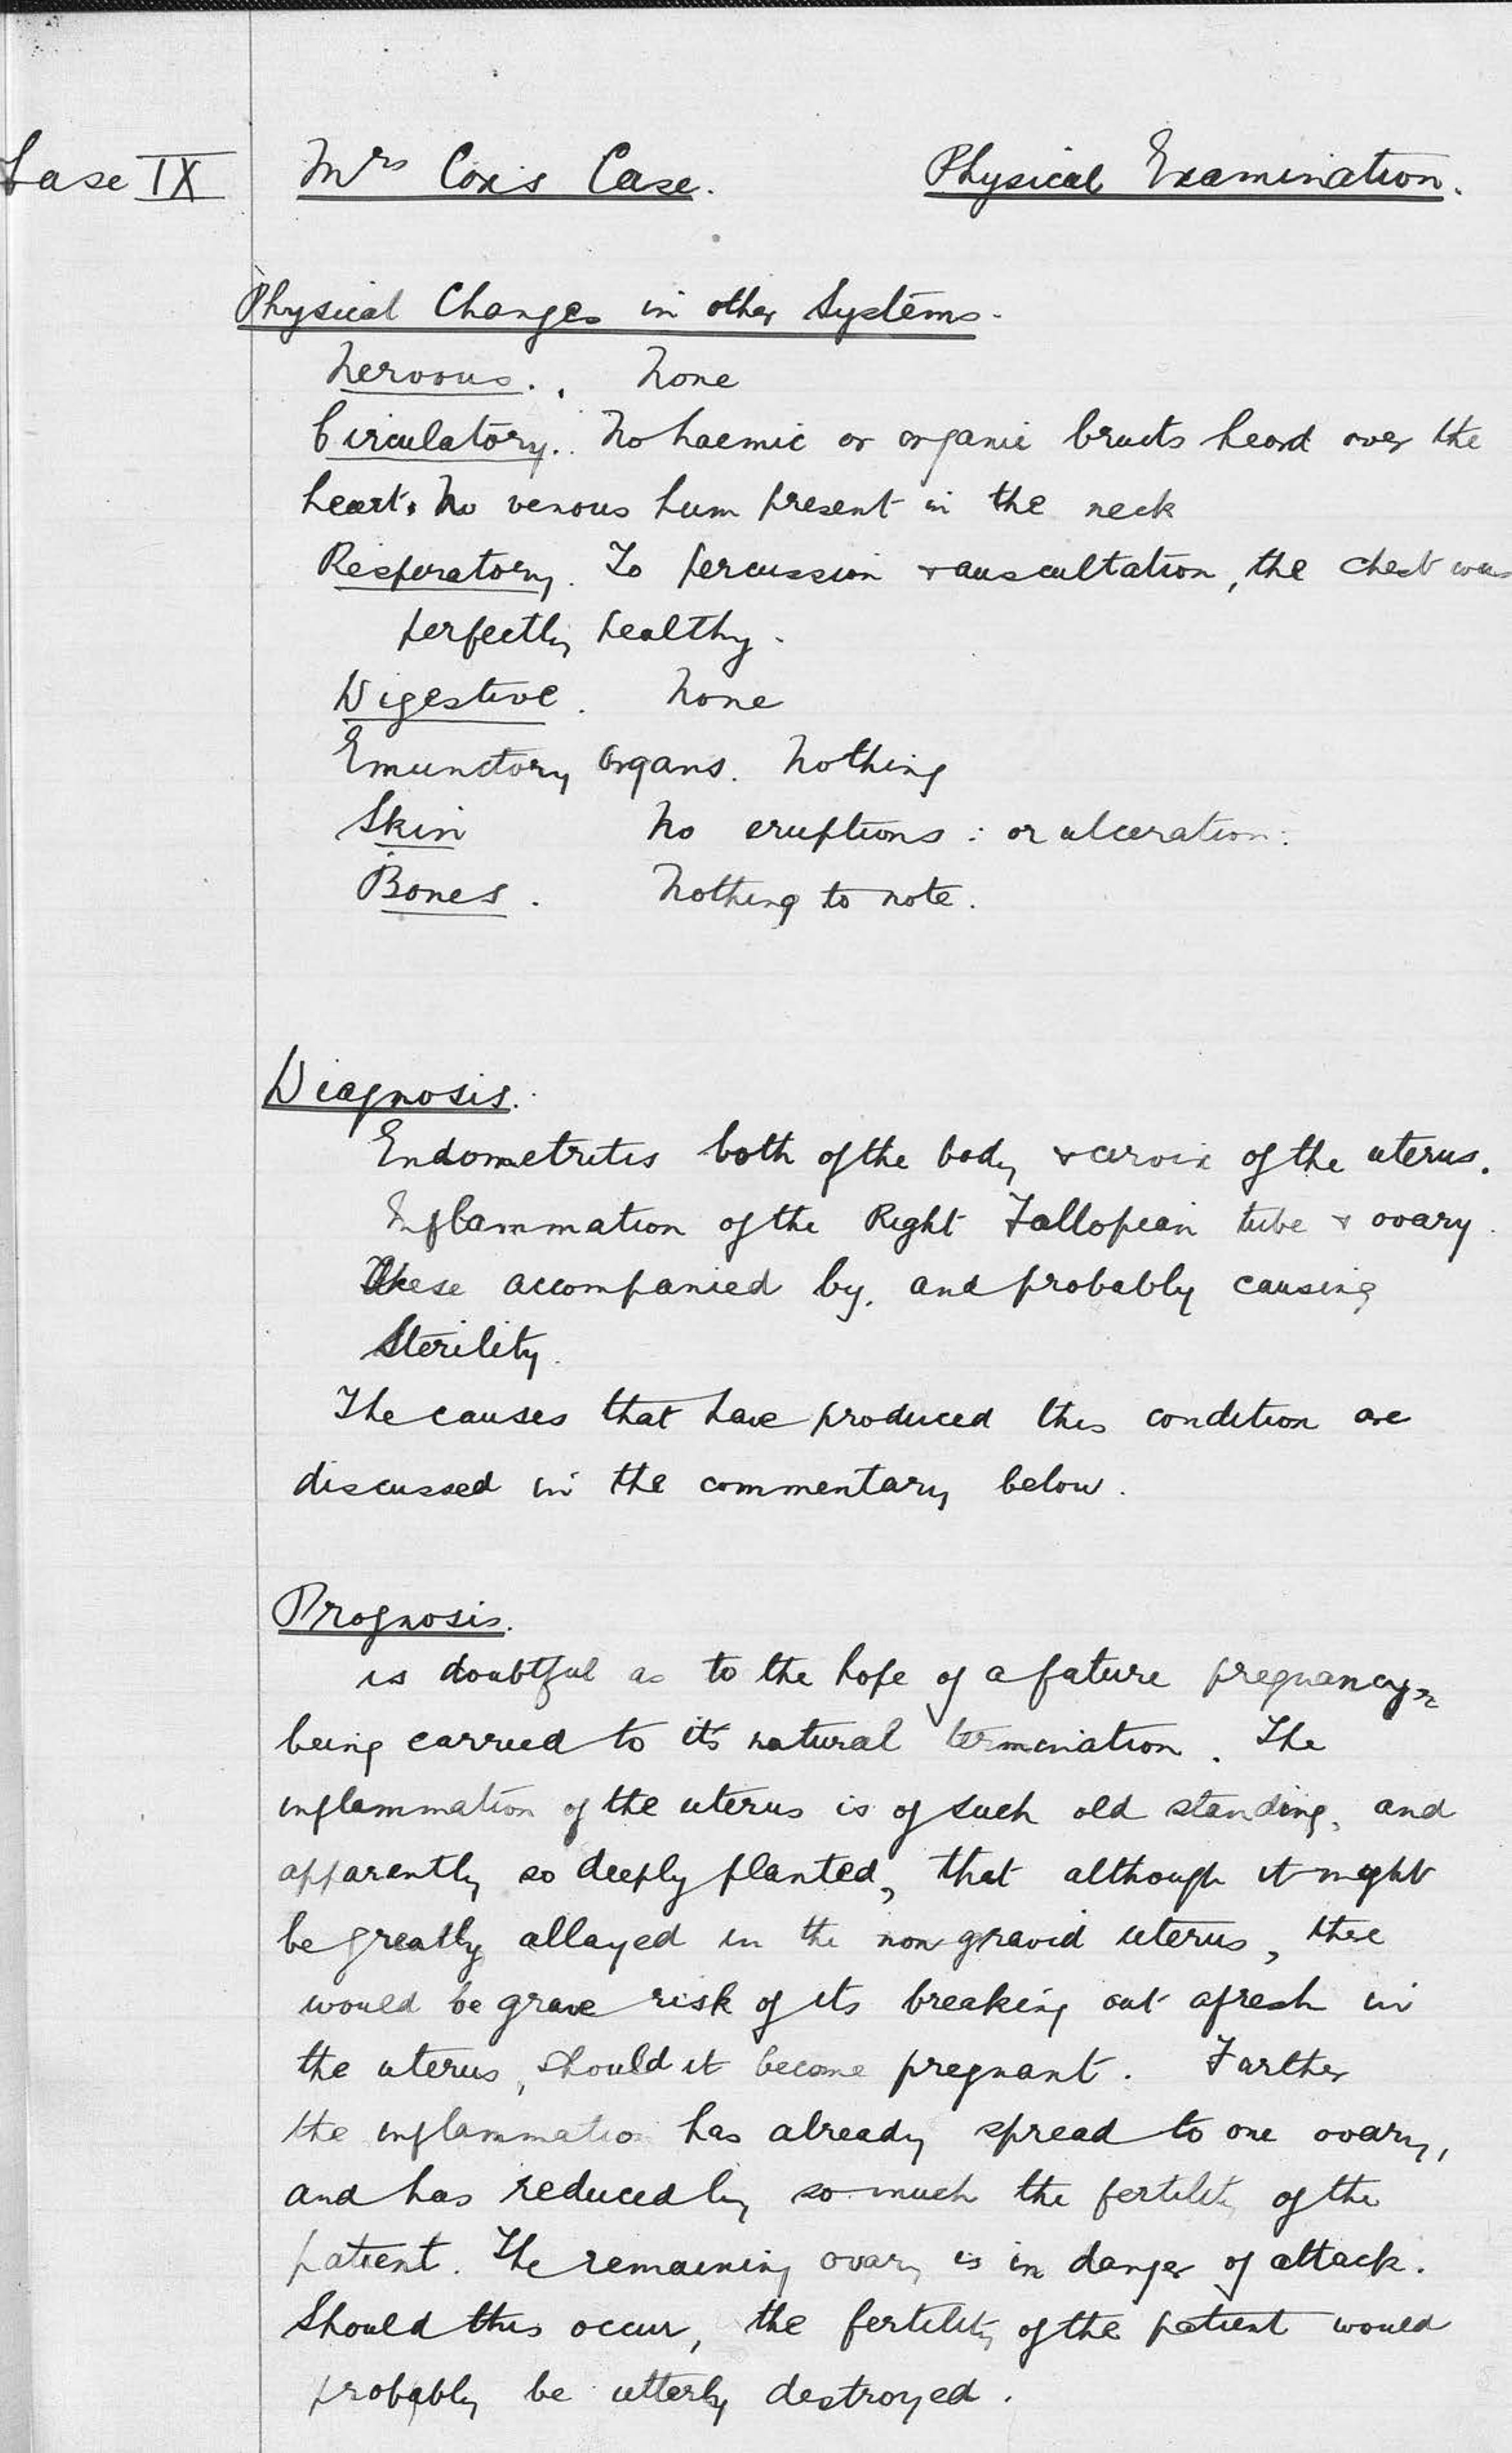 Case IX Mrs Cox's Case. Physical Examination.
Physical Changes in other Systems.
Nervous. None
Circulatory. No haemic or organic bruits heard over the
heart. No venous hum present in the neck
Respiratory. To percussion & auscultation, the chest was
perfectly healthy.
Digestive. None
Emunctory organs. Nothing
Skin No eruptions: or ulceration:
Bones. Nothing to note.
Diagnosis.
Endometritis both of the body & cervix of the uterus.
Inflammation of the Right Fallopian tube & ovary.
These accompanied by, and probably causing
Sterility.
The causes that have produced this condition are
discussed in the commentary below.
Prognosis.
is doubtful as to the hope of a future pregnancy
being carried to it's natural termination. The
inflammation of the uterus is of such old standing, and
apparently so deeply planted, that although it might
be greatly allayed in the non gravid uterus, there
would be grave risk of its breaking out afresh in
the uterus, should it become pregnant. Further
the inflammation has already spread to one ovary,
and has reduced by so much the fertility of the
patient. The remaining ovary is in danger of attack.
Should this occur, the fertility of the patient would
probably be utterly destroyed.